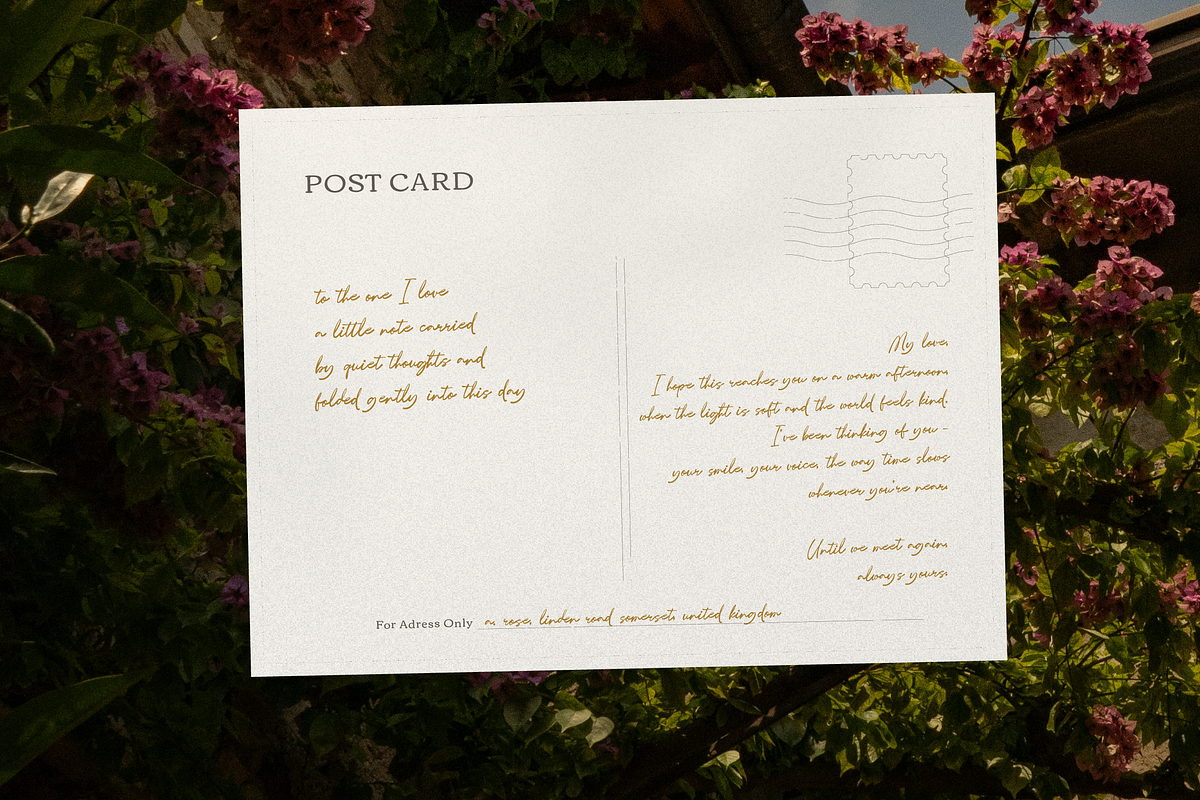 POST CARD
to the one I love
a little note carried
by quiet thoughts and
folded gently into this day
My love,
I hope this reaches you on a warm afternoon,
when the light is soft and the world feels kind.
I've been thinking of you -
your smile, your voice, the way time slows
whenever you're near.
Until we meet again,
always yours.
For Adress Only a. rose, linden road somerset, united kingdom